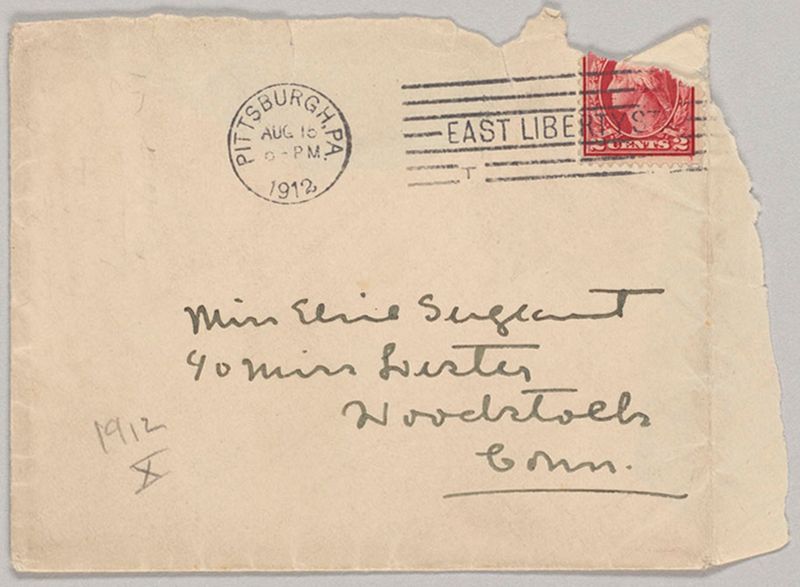 PITTSBURGH, PA.
AUG 16
6-PM
1912
EAST LIBERTY STA
T
2 CENTS 2
Miss Elsie Sergeant
c/o Miss Lester
Woodstock
Conn.
1912
X